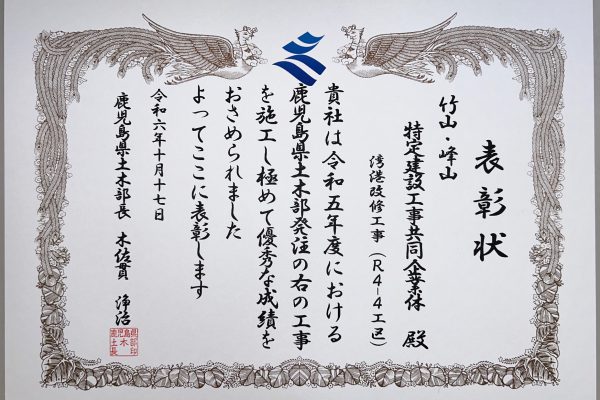 表彰状
竹山・峰山
特定建設工事共同企業体 殿
湾港改修工事(R4-4工区)
貴社は令和五年度における
鹿児島県土木部発注の右の工事
を施工し極めて優秀な成績を
おさめられました
よってここに表彰します
令和六年十月十七日
鹿児島県土木部長 木佐貫 浄治